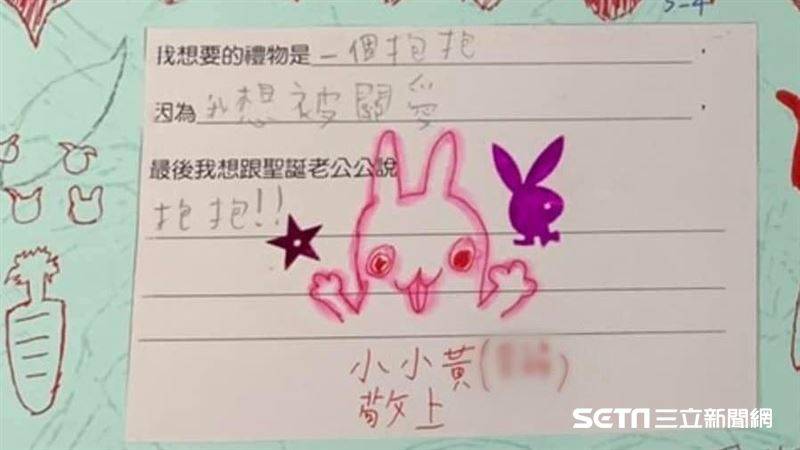 5-4
我想要的禮物是一個抱抱，
因為我想被關愛，
最後我想跟聖誕老公公說
抱抱!!
小小黃( )
敬上
SETN三立新聞網